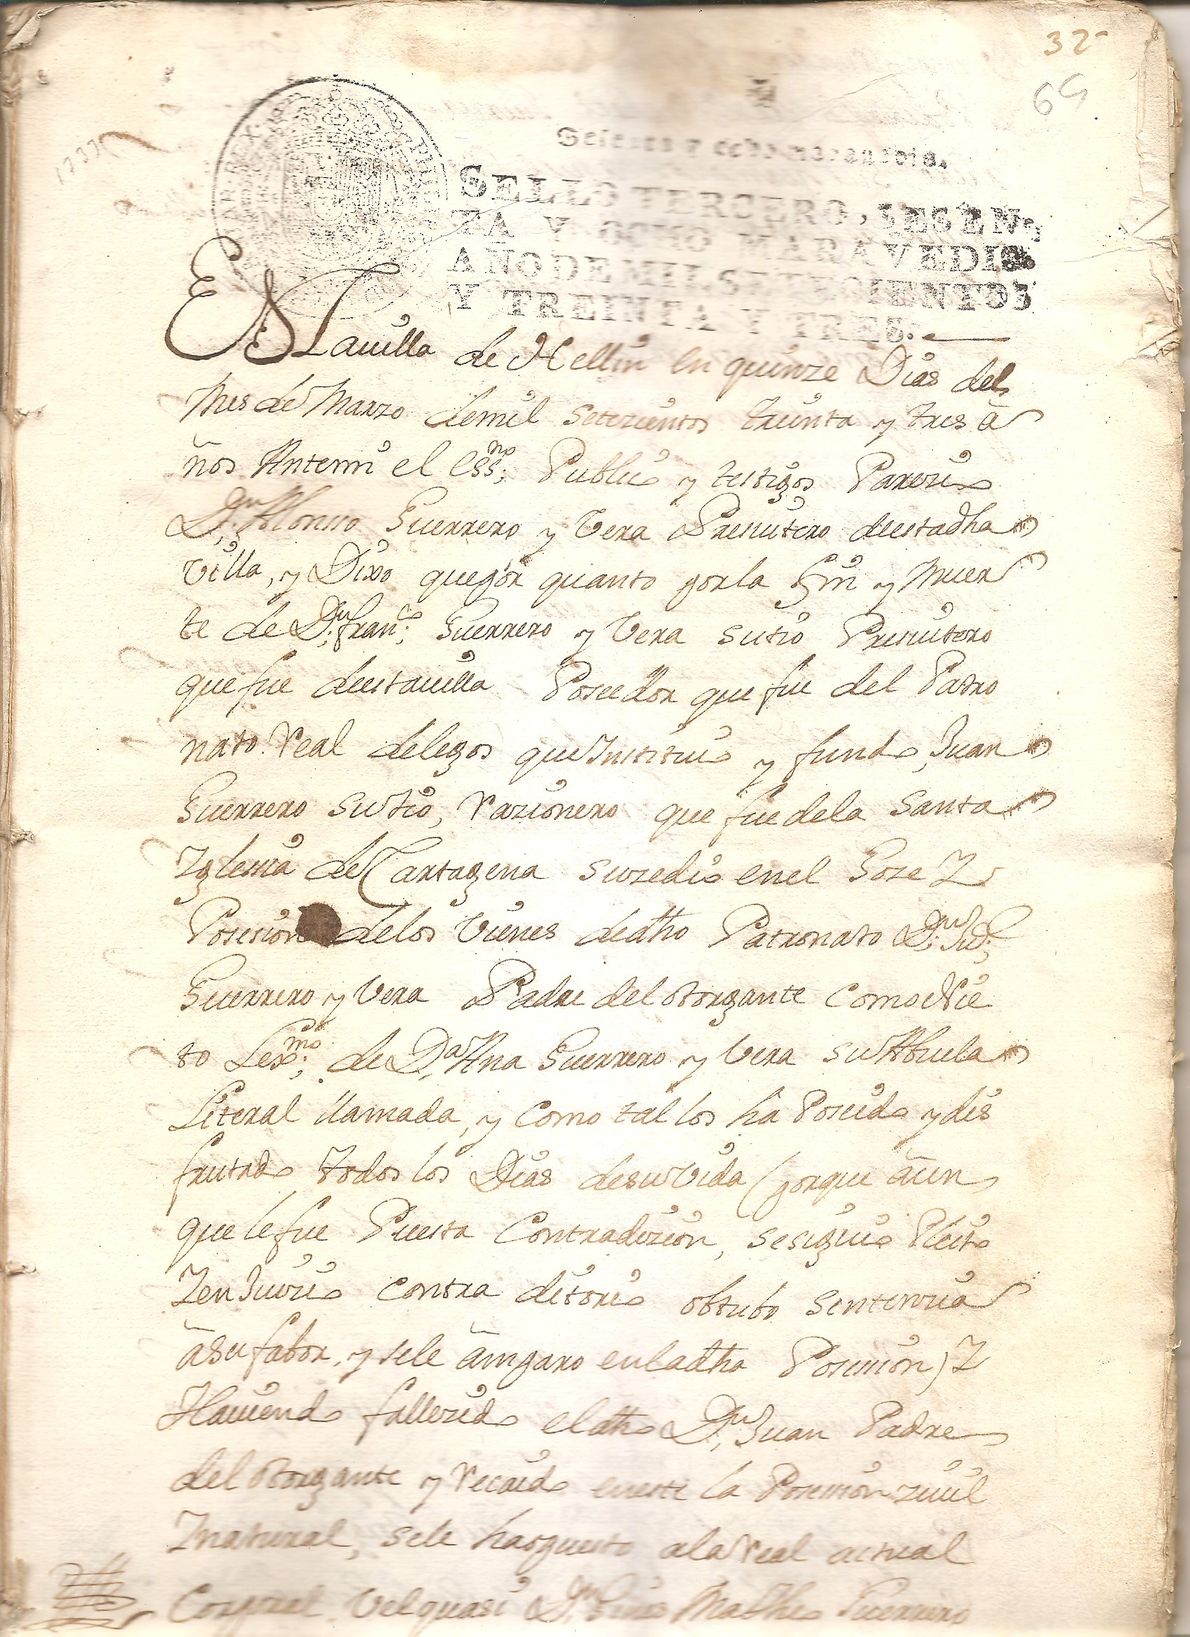 32
69
1733
Sesenta y ocho maravedis.
SELLO TERCERO, SESEN
TA Y OCHO MARAVEDIS
AÑO DE MIL SETECIENTOS
Y TREINTA Y TRES.
EN La uilla de Hellin en quinze Dias del
Mes de Marzo de mil Setezientos treinta y tres a
ños Antemi el Ess.no Publico y testigos Parezio
D.n Alonso Guerrero y Vera Presuitero de esta dha
Villa, y Dixo que por quanto por la fin y Muer
te de D.n Fran.co Guerrero y Vera su tio Presuitero
que fue de esta uilla Poseedor que fue del Patro
nato Real de legos que Instituio y fundo Juan
Guerrero su tio, Razionero que fue de la Santa
Yglesia de Cartagena suzedio en el Goze Y
Posesion de los Vienes de dho Patronato D.n Ju.o
Guerrero y Vera Padre del Otorgante como Nie
to Lex.mo de D.a Ana Guerrero y Vera su Abuela
Literal llamada, y como tal los ha Poseido y dis
frutado todos los Dias de su Vida (porque aun
que le fue Puesta Contradizion, se siguio Pleito
Y en Juizio contradictorio obtubo sentenzia
a su fabor, y se le amparo en la dha Posesion) Y
Hauiendo fallezido el dho D.n Juan Padre
del Otorgante y recaido en este la Posesion ziuil
Y natural, se le ha puesto a la Real actual
Corporal Vel quasi D.n Gines Matheo Guerrero